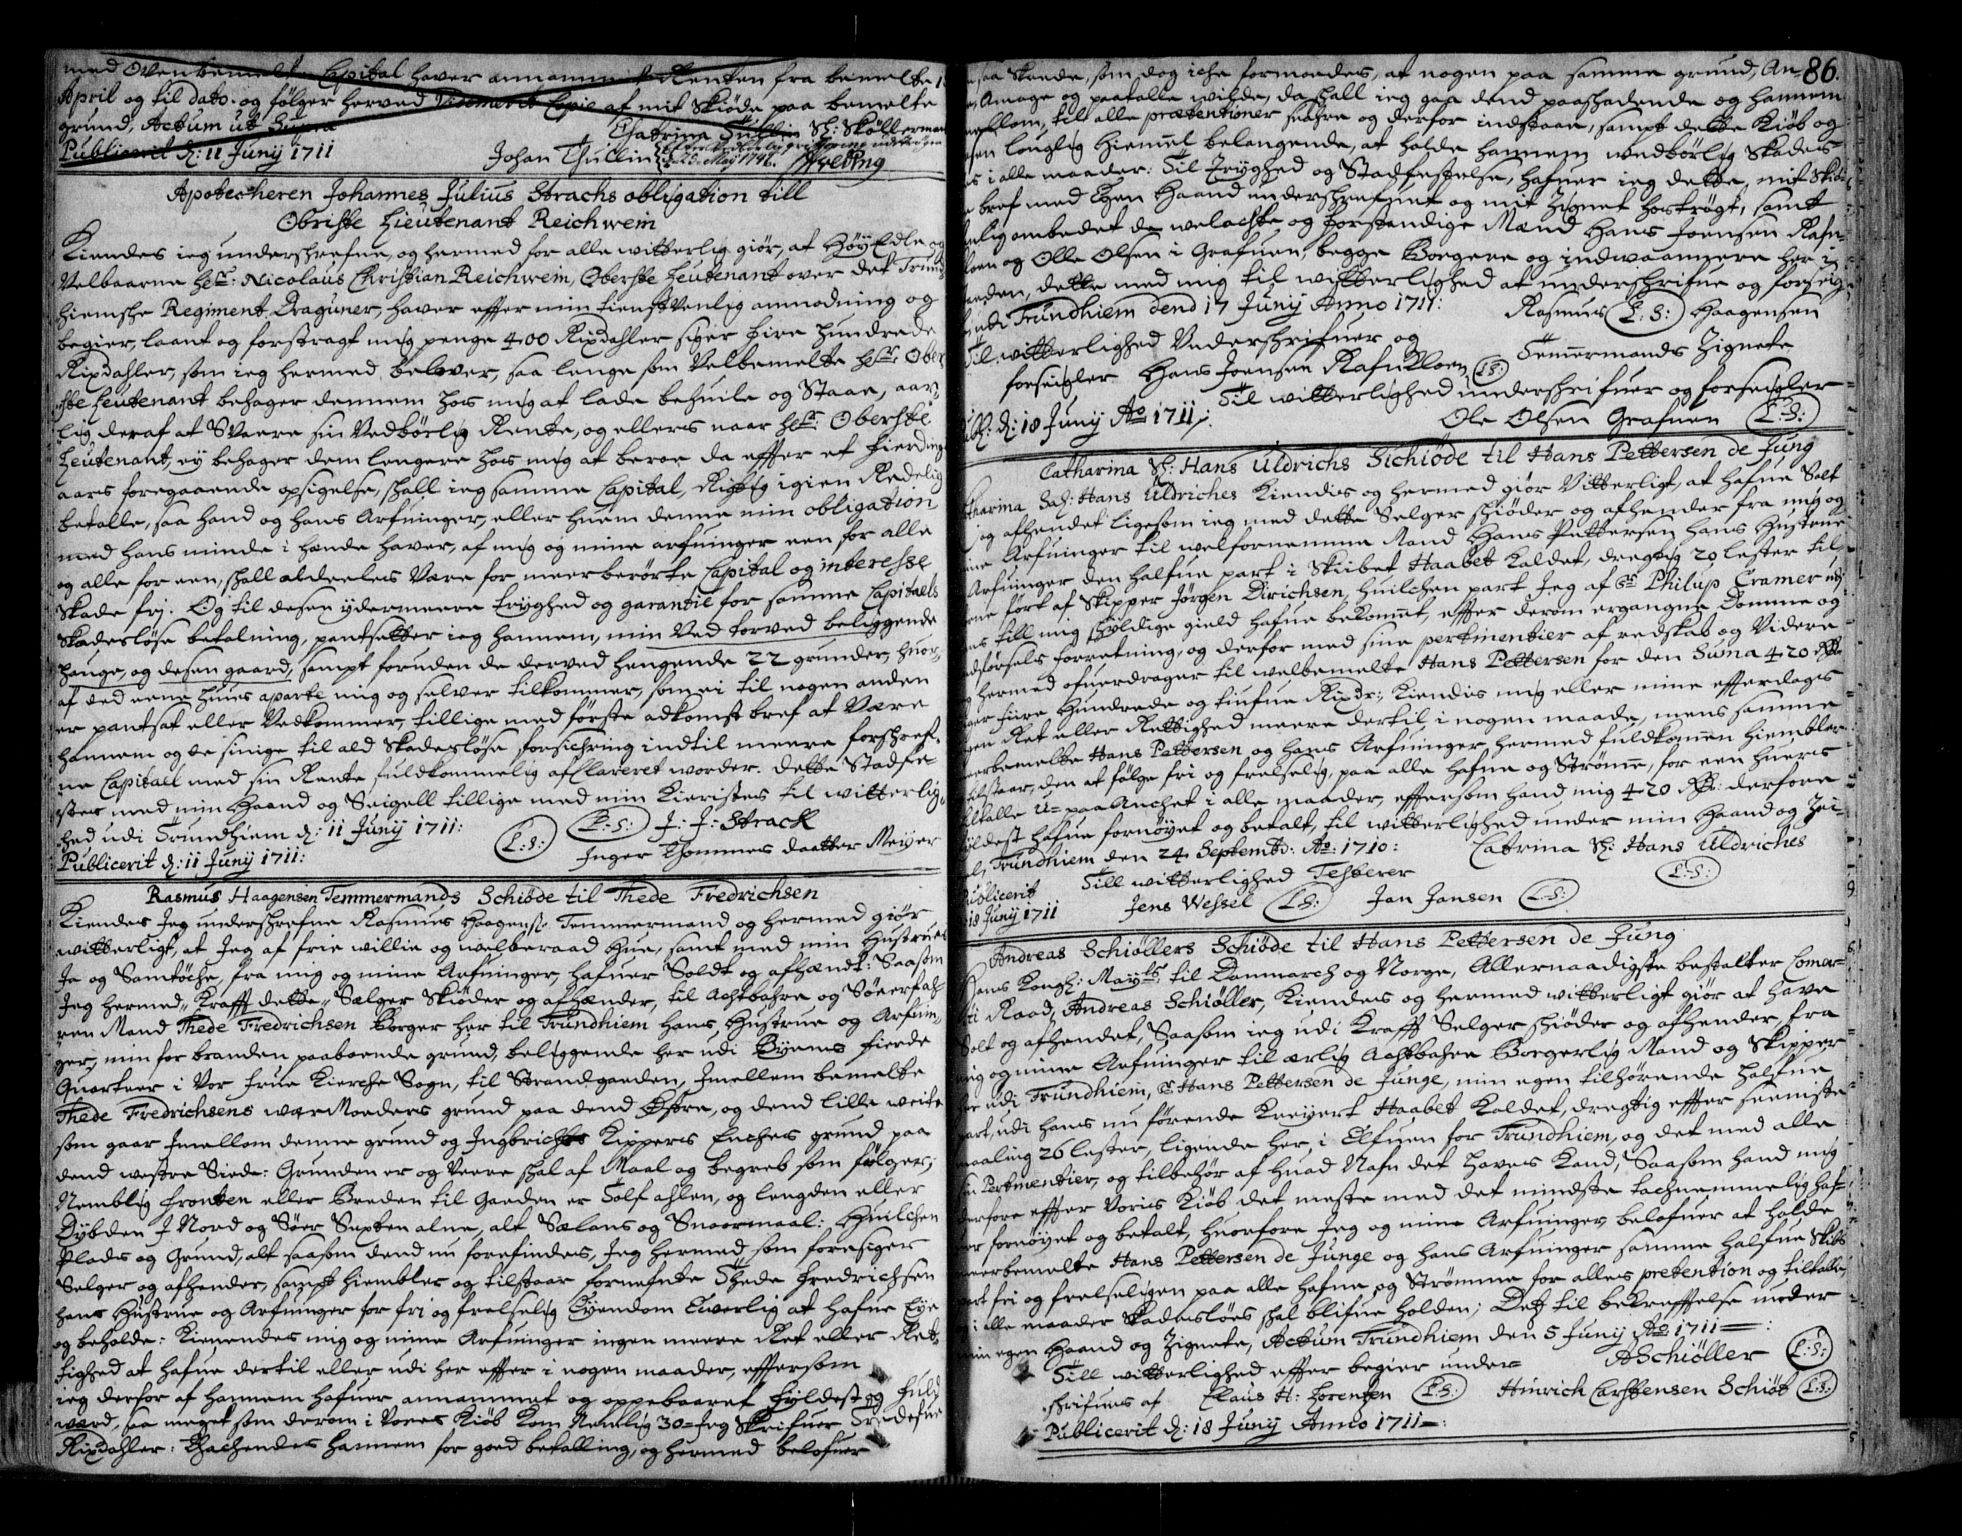 med Ovenbemelte Capital haver annammet Renten fra bemelte 1
April og til dato. og følger herved Videmerit Copie af mit Skiøde paa bemelte
grund, Actum ut Supra
Chatrina Tullin Sl: Skøllerman
Publicerit d: 11 Junij 1711
Johan Thullin
Apotecheren Johannes Julius Stracks obligation till
Obriste Lieutenant Reichwein
Kiendes ieg underschrefne, og hermed for alle witterlig giør, at HøyEdle og
Velbaarne Hr: Nicolaus Christian Reichwein, Oberste Leutenant over det Trund-
hiemske Regiment Draguner, haver effter min tienstVenlig anmodning og
begier, laant og forstragt mig penge 400 Rixdahler siger fire Hundrede
Rixdahler, som ieg hermed belover, saa lenge som Velbemelte Hr: Ober-
ste Leutenant behager dennem hos mig at lade behuile og Staae, aar-
lig deraf at Svaere sin Vedbørlig Rente, og ellers naar Hr: Oberste
Leutenant, ey behager dem lengere hos mig at beroe da effter et fierding
aars foregaaende opsigelse, skall ieg samme Capital, Rigtig igien Redelig
betalle, saa hand og hans Arfuinger, eller huem denne min obligation
med hans minde i hænde haver, af mig og mine arfuinger een for alle
og alle for een, skall aldeeles Være for meerberørte Capital og interesse
Skade frj. Og til desen ydermeere tryghed og garantie for samme Capitals
Skadesløse betalning, pantsetter ieg hannem, min Ved torved beliggende
Hauge, og desen gaard, sampt foruden de derved hengende 22 grunder, huor-
af ded eene Huus aparte mig og selver tilkommer, som ei til nogen anden
er pantsat eller Vedkommer, tillige med første adkomst bref at Være
hannem og de sinige til ald Skadesløse forsichring indtil meere forschref-
ne Capitall med sin Rente fuldkommelig afklareret worder. Dette Stadfe-
stes med min Haand og Seigell tillige med min Kieristes til witterlig-
hed udi Trundhiem d: 11 Junij 1711:
L:S: J: J: Strack
Publicerit d: 11 Junij 1711:
L:S: Inger Thommes daatter Meiyer
Rasmus Haagensen Temmermands Schiøde til Thede Fredrichsen
Kiendes Jeg underschrefne Rasmus Haagens: Temmermand og hermed giør
witterligt, at Jeg af frie willie og welberaad Hue, samt med min Hustrues
Ja og Samtøche, fra mig og mine Arfuinger, hafuer Soldt og afhændt: Saasom
Jeg hermed, Krafft dette, Sælger Skiøder og afhænder, til Achtbahre og Søeerfah-
ren Mand Thede Fredrichsen Borger her til Trundhiem hans Hustrue og Arfuin-
ger, min for branden paaboende grund, beliggende her udi Byens Fierde
Quarteer i Vor Frue Kierche Sogn, til Strandgaden, Imellem bemelte
Thede Fredrichsens wærMoeders grund paa dend Østre, og dend lille weite
som gaar Imellom denne grund og Ingbrichts Kippers Enches grund paa
dend westre Siede: Grunden er og Veere skal af Maal og begreb som følger;
Nemblig Fronten eller Breden til Gaden er Tolf ahlen, og lengden eller
Dybden I Nord og Søer Sexten alne, alt Sælans og Snoermaal: Huilchen
Plads og Grund, alt saasom dend nu forefindes, Jeg hermed, som foresiger
Selger og afhender, sampt hiembler og tilstaar fornefnte Thede Fredrichsen
hans Hustrue og Arfuinger for fri og frelselig Eyendom Everlig at hafue Eye
og beholde: Kienendes mig og mine Arfuinger ingen meere Ret eller Ret-
tighed at hafue dertil eller udi her effter i nogen maader, efftersom
ieg derfor af hannem hafuer annammet og oppebaaret fyldest og fuld
wærd, saa meget som derom i Vores Kiøb Kom Nemlig 30 Jeg Skrifuer Tredefue
Rixdahler: Thachendes hannem for goed betalling, og hermed belofuer
86.
saa skeede, som dog iche formoedes, at nogen paa samme grund, An-
Amage og paatalle wilde, da skall ieg gaa dend paaschadende og hannem
mellom, til alle prætentioner suahre og derfor indstaae, sampt dette Kiøb og
desen louglig Hiemmel belangende, at holde hannem wedbørlig Skades-
løs i alle maader: Til Tryghed og Stadfestelse, hafuer ieg dette mit Skiøde
bref med Egen Haand underschrefuit og mit Zignet hostrøgt, samt
venlig ombedet de welachte og forstendige Mænd Hans Joensen Rafn-
kloen og Olle Olsen i Grafuen, begge Borgere og indwaannere her i
Staden, dette med mig til witterlighed at underschrifue og forseigle
udi Trundhiem dend 17 Junij Anno 1711:
Rasmus L:S: Haagensen
Temmermands Zignete
Til witterlighed Underschrifuer og
forseigler Hans Joensen Rafnkloen L:S:
Til witterlighed underschrifuer og forseigler
Ole Olsen Grafuen L:S:
Publ: d: 18 Junij Ao 1711
Catharina Sl: Hans Uldrichs Schiøde til Hans Pettersen de Jung
Catharina Sal: Hans Uldriches Kiendes og hermed giør Vitterligt, at hafue Solt
og afhendet ligesom ieg med dette Selger skiøder og afhender fra mig og
mine Arfuinger til welfornemme Mand Hans Pettersen hans Hustrue
Arfuinger den halfue part i Skibet Haabet Kaldet, drectig 20 lester til-
forne ført af Skipper Jørgen Dirichsen, huilchen part Jeg af Sr Philup Cramer
till mig skyldige gield hafue bekommet, effter derom ergangne Domme og
udførsels forretning, og derfor med sine pertinentier af redskab og Videre
hermed ofuerdrager til welbemelte Hans Pettersen for den Suma 420 Rdr
siger fiire Hundrede og tiufue Rixdr: Kiendes mig eller mine effterdages
ingen Ret eller Rettighed meere dertil i nogen maade, mens samme
meerbemelte Hans Pettersen og hans Arfuinger hermed fuldkommen hiembler
tilstaar, den at følge fri og frelselig, paa alle hafne og Strømme, for een huers
tiltalle U-paaAnchet i alle maader, efftersom hand mig 420 Rdr: derfore
fyldest hafue fornøyet og betalt, til witterlighed under min Haand og Zei-
gel, Trundhiem den 24 Septembr: Ao: 1710:
Catrina Sl: Hans Uldriches
L:S:
Till witterlighed Testerer
Publicerit
18 Junij 1711
Jens Wessel L:S: Jan Jansen L:S:
Andreas Schiøllers Schiøde til Hans Pettersen de Jung
Hans Kongl: Mayts til Danmarch og Norge, Allernaadigste bestalter Comer-
tie Raad, Andreas Schiøller, Kiendes og hermed witterligt giør at have
Solt og afhendet, Saasom ieg udi Krafft Selger skiøder og afhender, fra
mig og mine Arfuinger til ærlig Achtbahre Borgerlig Mand og Skipper
her udi Trundhiem, Sr Hans Pettersen de Junge, min egen tilhørende halfue
part, udi hans nu førende Kreyert Haabet Kaldet, dregtig effter seeniste
maaling 26 lester, ligende her i Elfuen for Trundhiem, og det med alle
sin Pertinentier, og tilbehør af huad Nafn det haves Kand, Saasom hand mig
derfore effter Voris Kiøb det meste med det mindste tachnemmelig haf-
uer fornøyet og betalt, huorfore Jeg og mine Arfuinger belofuer at holde
meerbemelte Hans Pettersen de Junge og hans Arfuinger samme halfue Skibs
part fri og frelseligen paa alle hafne og Strømme for alles pretention og tiltalle,
i alle maader skadesløes skal blifue holden; Detz til bekrefftelse under
min egen Haand og Zignete, Actum Trundhiem den 5 Junij Ao 1711
ASchiøller L:S:
Till witterlighed effter begier under-
skrifues af Claus H: Lorentzen L:S: Hinrich Carstensen Schiøt L:S:
Publicerit d: 18 Junij Anno 1711